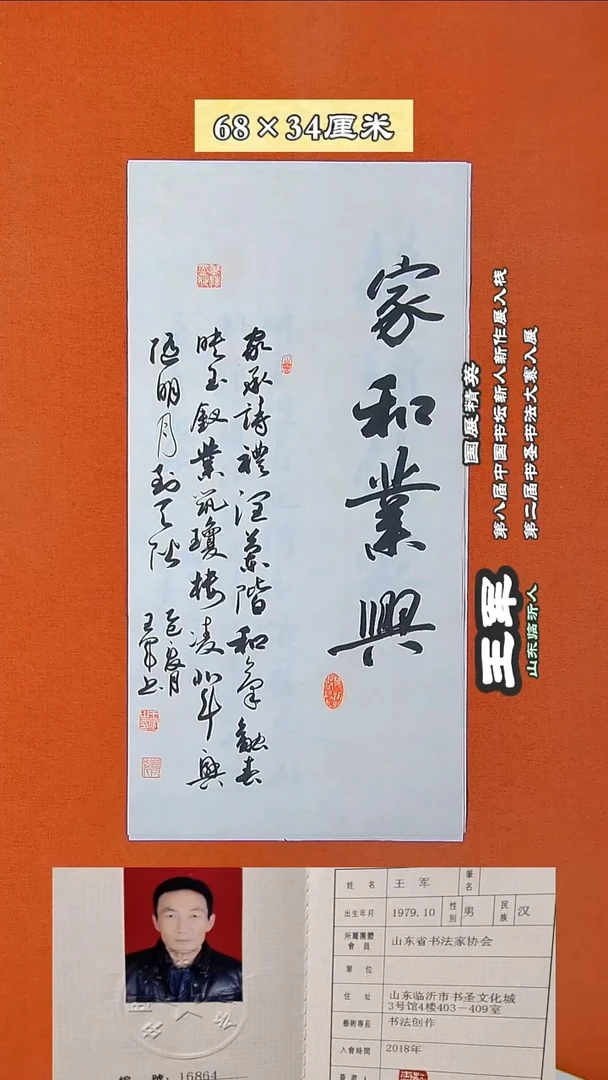 68×34厘米
家和業興
家承詩禮澤蘭階和氣融春
映玉釵業筑瓊樓凌北斗興
随明月到天阶
乙巳夏月
王軍书
国展精英
第八届中国书坛新人新作展入栈
第二届书圣书法大赛入展
王军
山东临沂人
姓 名 王 军 筆名
出生年月 1979.10 性别 男 民族 汉
所屬團體會員 山东省书法家协会
單 位
住 址 山东临沂市书圣文化城
3号馆4楼403—409室
藝術專長 书法创作
入會時間 2018年
編 號: 16864